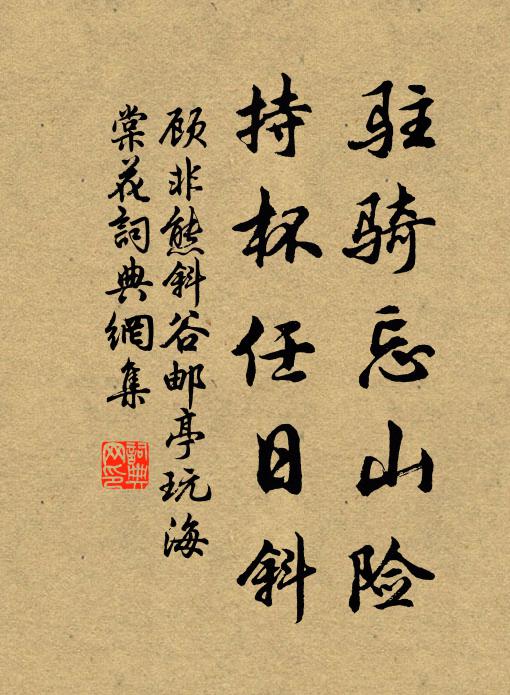 驻骑忘山险
持杯任日斜
顾非熊斜谷邮亭玩海
棠花词典網集
詞典网印